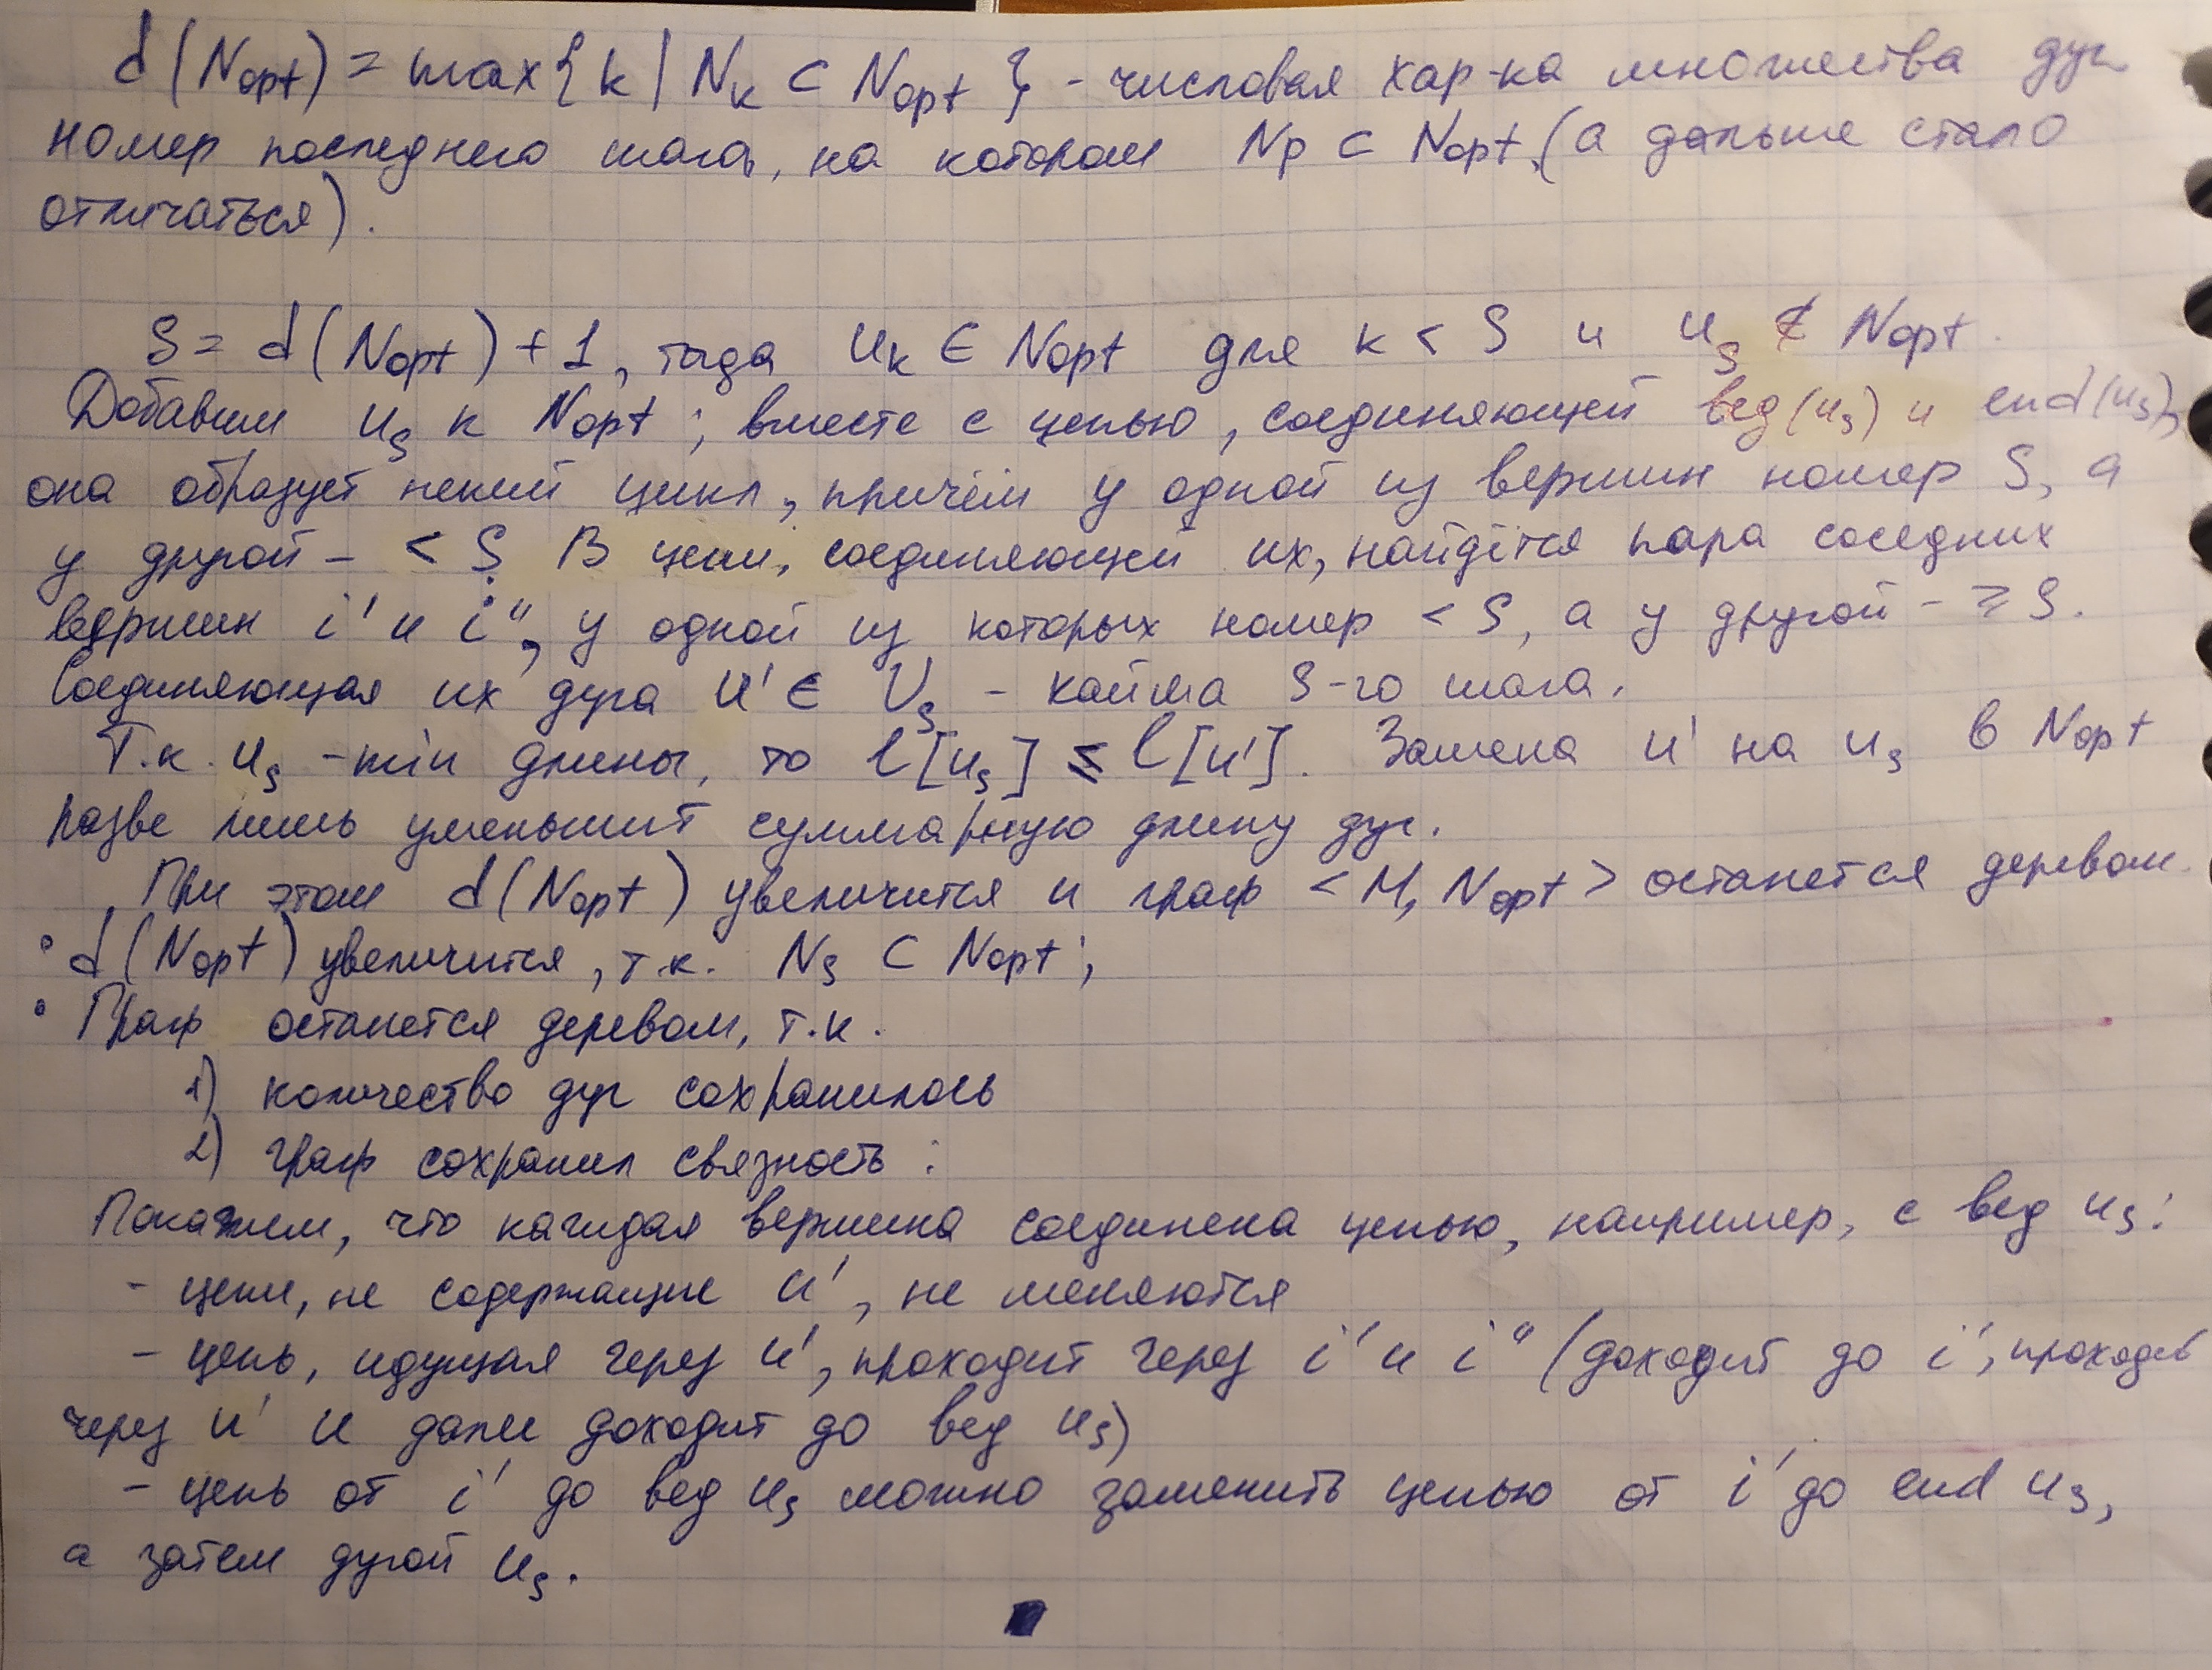 d(Nopt) = max{k | Nk ⊂ Nopt} - числовая хар-ка множества дуг
номер последнего шага, на котором Np ⊂ Nopt (а дальше стало
отличаться).
S = d(Nopt) + 1, тогда uk ∈ Nopt для k < S и us ∉ Nopt.
Добавим us к Nopt; вместе с цепью, соединяющей beg(us) и end(us),
она образует некий цикл, причём у одной из вершин номер S, а
у другой - < S. В цепи, соединяющей их, найдётся пара соседних
вершин i' и i", у одной из которых номер < S, а у другой - ≥ S.
Соединяющая их дуга u' ∈ Us - кайма S-го шага.
Т.к. us - min длины, то l[us] ≤ l[u']. Замена u' на us в Nopt
разве лишь уменьшит суммарную длину дуг.
При этом d(Nopt) увеличится и граф <M, Nopt> останется деревом.
• d(Nopt) увеличится, т.к. Ns ⊂ Nopt;
• Граф останется деревом, т.к.
1) количество дуг сохранилось
2) граф сохранил связность:
Покажем, что каждая вершина соединена цепью, например, с beg us:
- цепи, не содержащие u', не меняются
- цепь, идущая через u', проходит через i' и i" (доходит до i', проходит
через u' и далее доходит до beg us)
- цепь от i' до beg us можно заменить цепью от i' до end us,
а затем дугой us.